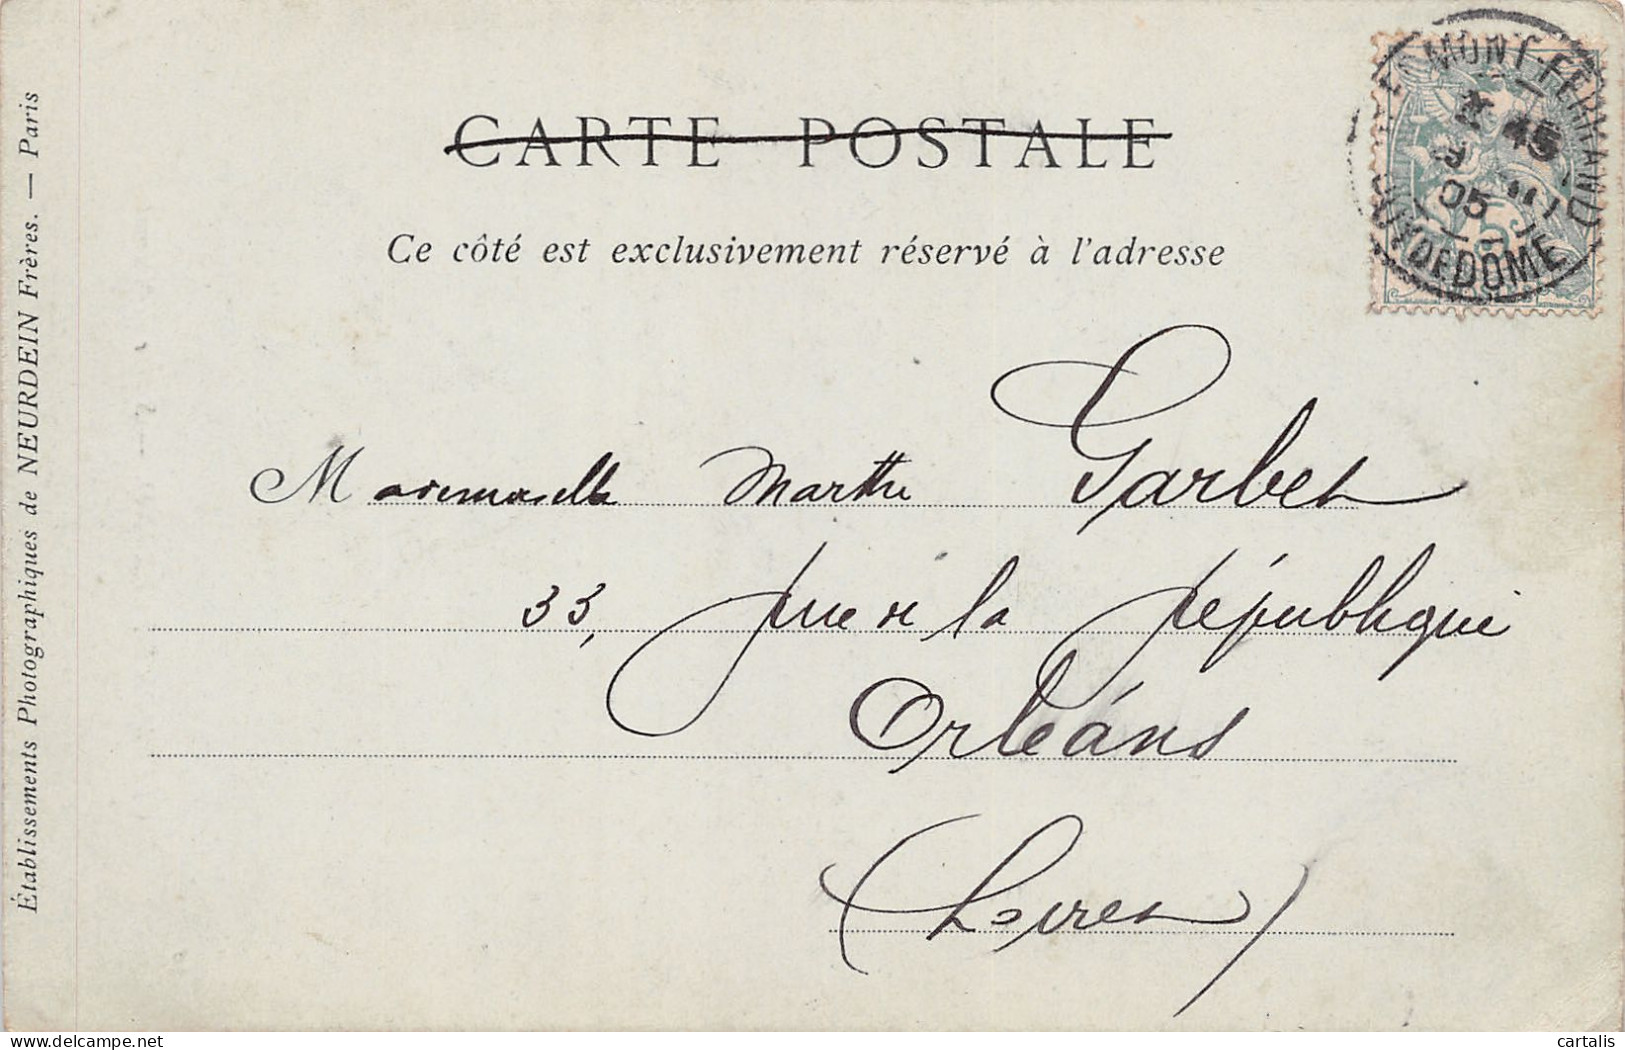 CARTE POSTALE
Ce côté est exclusivement réservé à l'adresse
Établissements Photographiques de NEURDEIN Frères. — Paris
MONT-FERRAND
45
05
PUY DE DOME
5
Mademoiselle Marthe Garbet
33, rue de la république
Orléans
(Loiret)
cartalis
delcampe.net